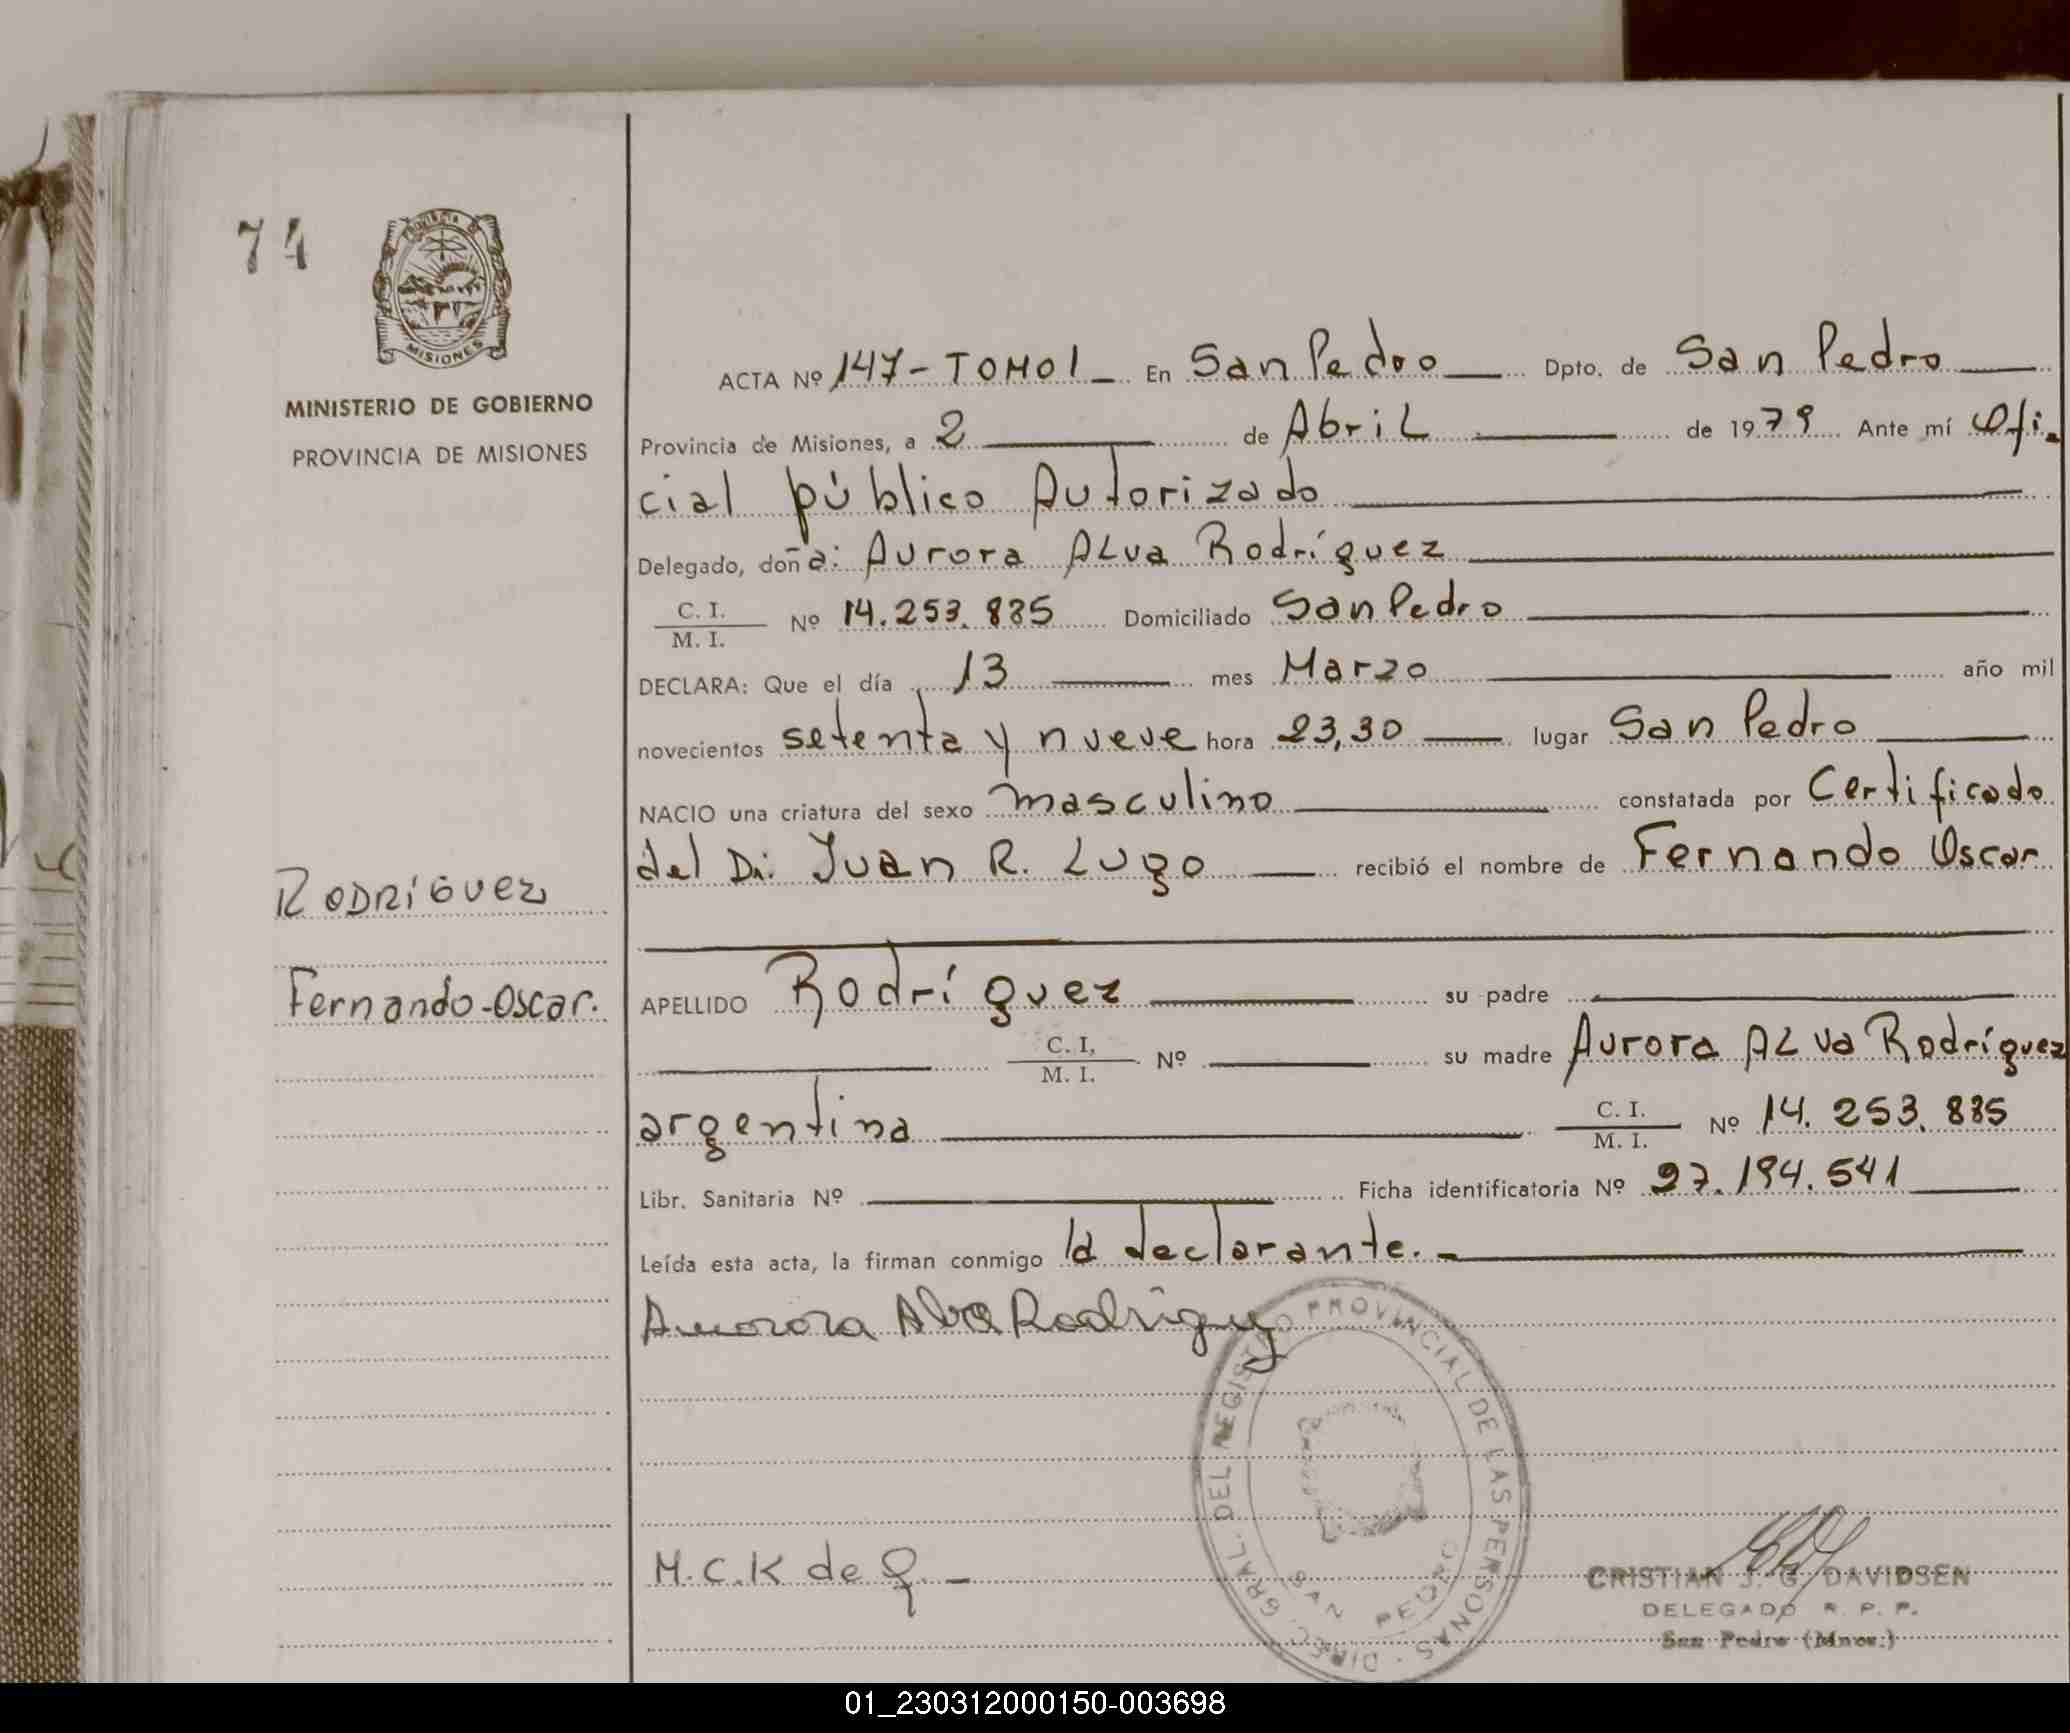 74
PROVINCIA DE
MISIONES
MINISTERIO DE GOBIERNO
PROVINCIA DE MISIONES
ACTA Nº 147-TOMO I_ En San Pedro Dpto. de San Pedro
Provincia de Misiones, a 2 de Abril de 1979 Ante mí Ofi-
cial público Autorizado
Delegado, doña: Aurora ALva Rodríguez
C. I. / M. I. Nº 14.253.885 Domiciliado San Pedro
DECLARA: Que el día 13 mes Marzo año mil
novecientos setenta y nueve hora 23,30 lugar San Pedro
NACIO una criatura del sexo masculino constatada por Certificado
del Dr. Juan R. Lugo recibió el nombre de Fernando Oscar
RODRíGUEZ
Fernando-Oscar.
APELLIDO Rodríguez su padre
C. I, / M. I. Nº su madre Aurora ALva Rodríguez
argentina C. I. / M. I. Nº 14.253.885
Libr. Sanitaria Nº Ficha identificatoria Nº 27.194.541
Leída esta acta, la firman conmigo la declarante.-
Aurora Alva Rodriguez
DIREC. GRAL. DEL REGISTRO PROVINCIAL DE LAS PERSONAS
SAN PEDRO
M.C.K de Q.-
CRISTIAN J. G. DAVIDSEN
DELEGADO R. P. P.
San Pedro (Mnes.)
01_230312000150-003698